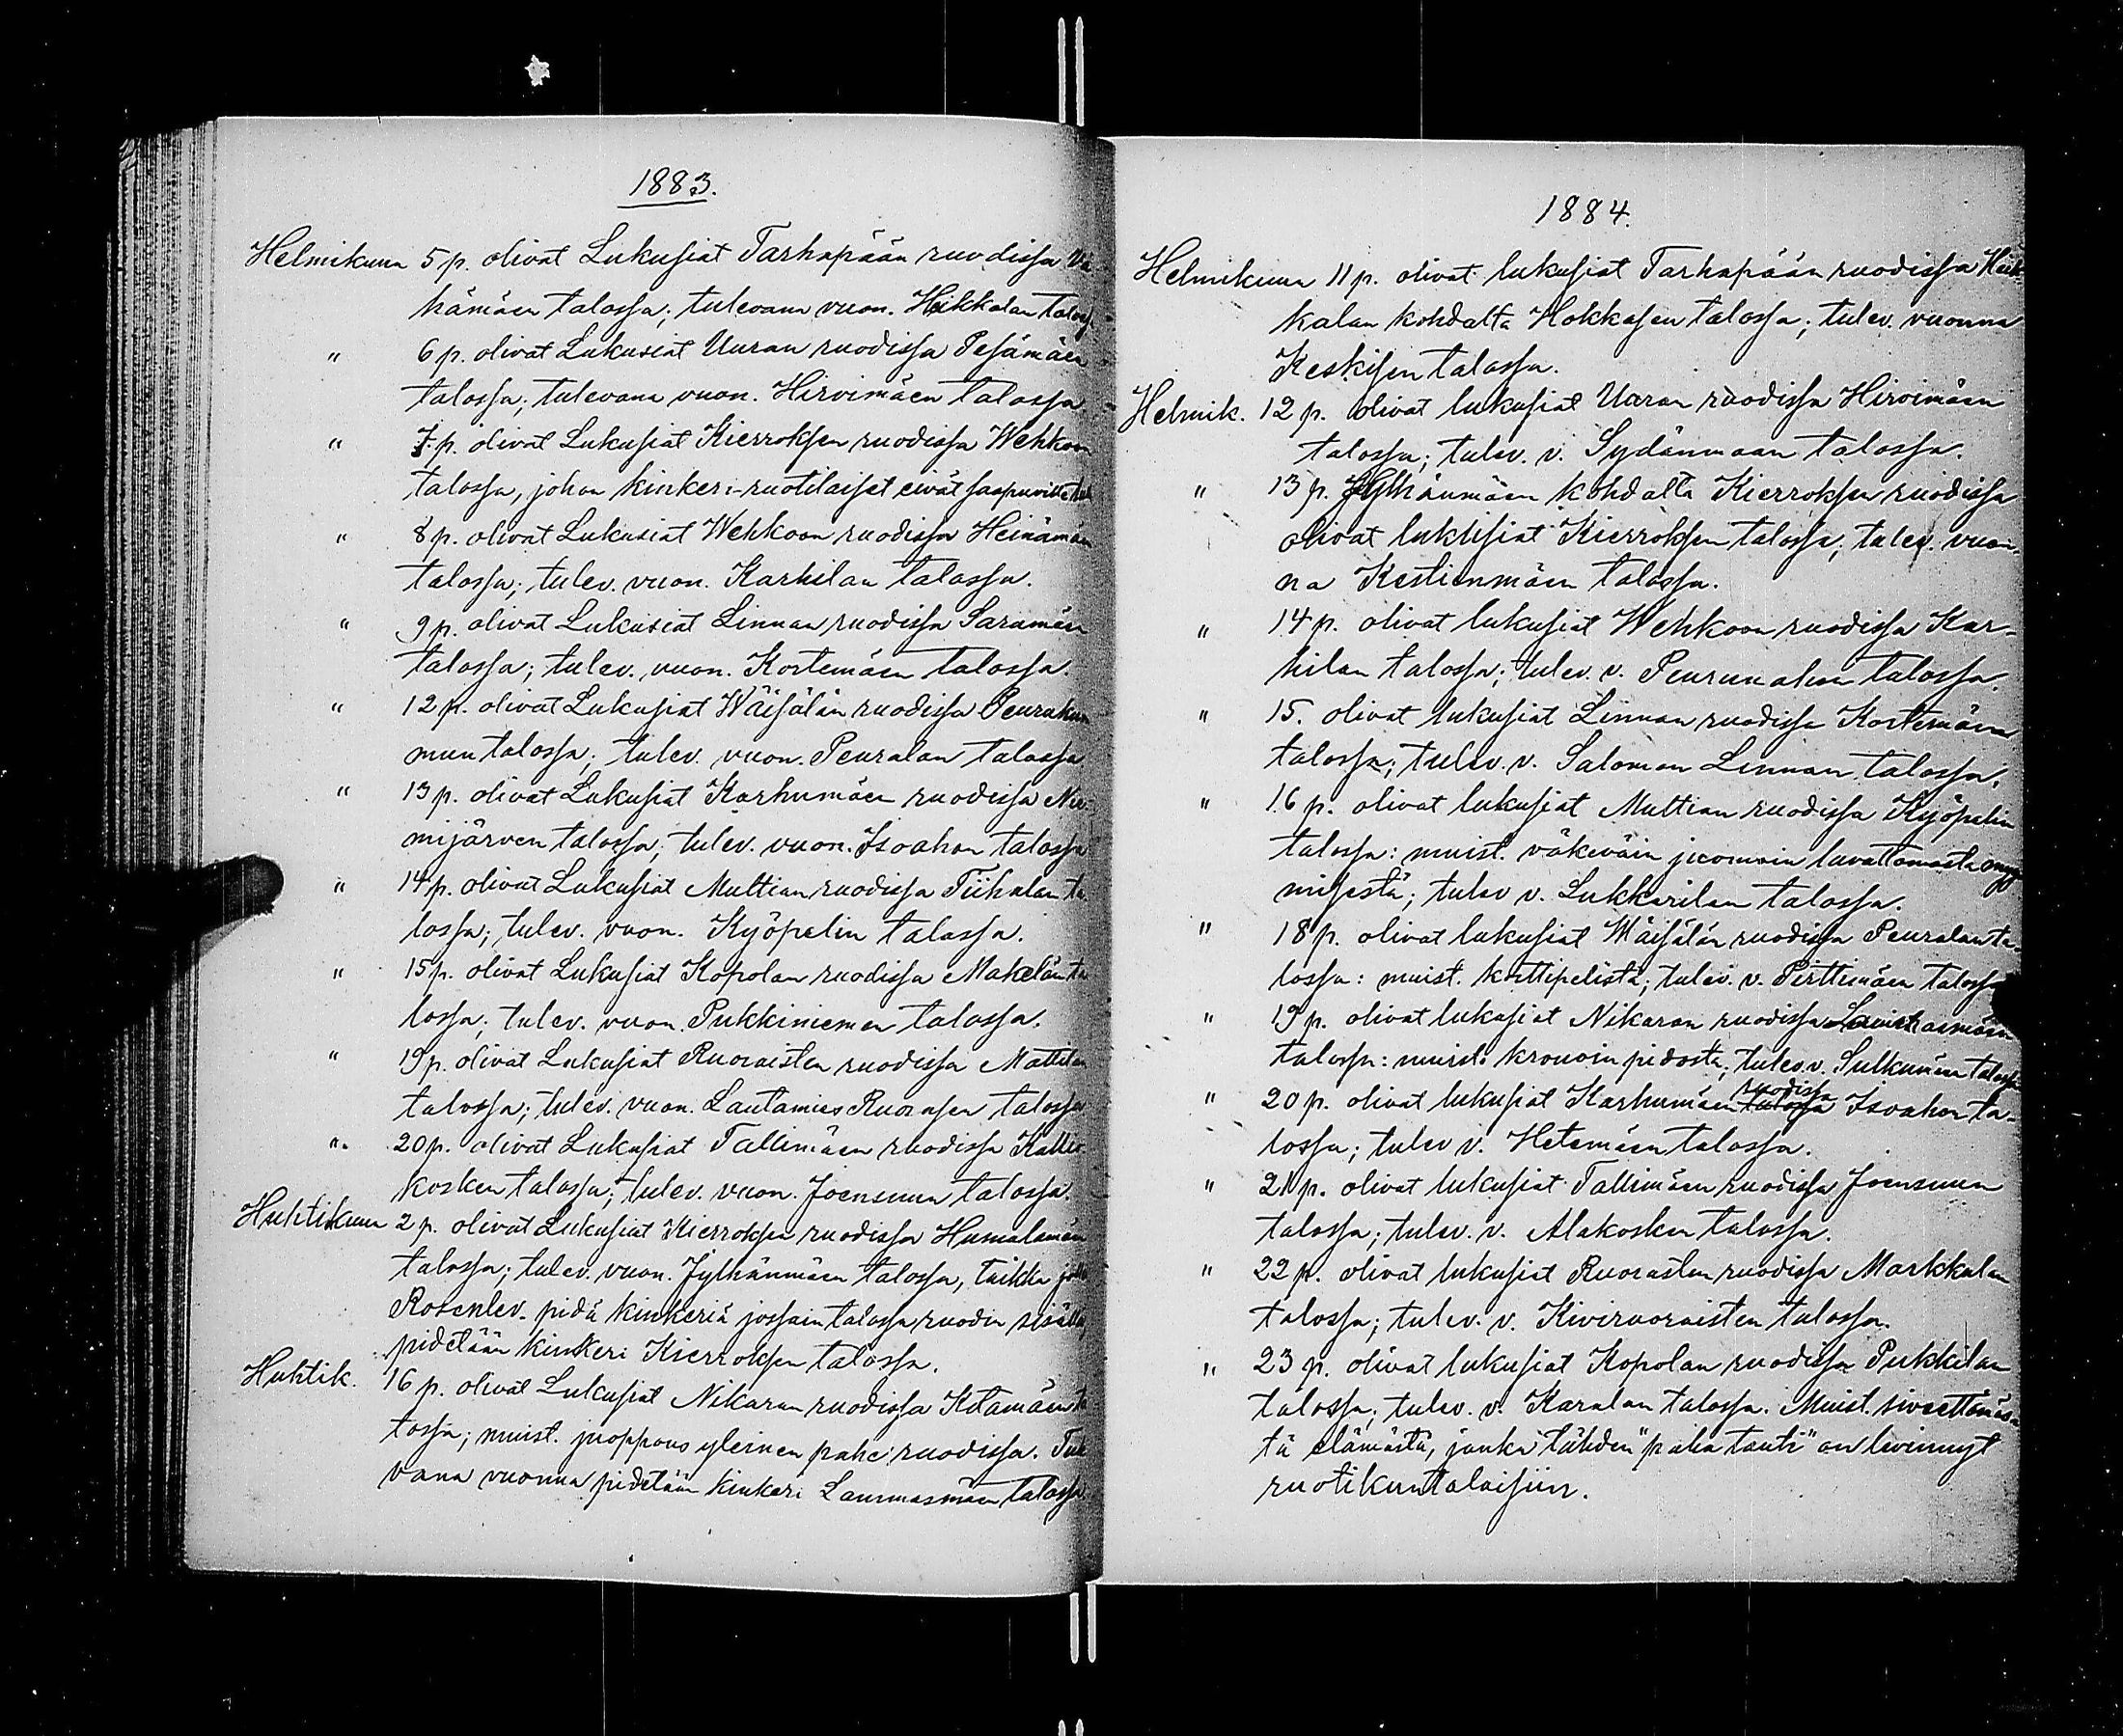 1883.
Helmikuun 5 p. olivat Lukusiat Tarhapään ruodissa Vä
hämäen talossa; tulevana vuon. Heikkalan taloss
" 6 p. olivat Lukusiat Uuran ruodissa Pesämäen
talossa; tulevana vuon. Hirvimäen talossa
" 7 p. olivat Lukusiat Kierroksen ruodissa Wehkoon
talossa, johon kinkeri-ruotilaiset eivät saapuville
" 8 p. olivat Lukusiat Wehkoon ruodissa Heinämäen
talossa; tulev. vuon. Karhilan talossa.
" 9 p. olivat Lukusiat Linnan ruodissa Saramäen
talossa; tulev. vuon. Kortemäen talossa.
" 12 p. olivat Lukusiat Wäisälän ruodissa Peurakum
mun talossa; tulev. vuon. Peuralan talossa
" 13 p. olivat Lukusiat Karhumäen ruodissa Nie-
mijärven talossa; tulev. vuon. Isoahon talossa
" 14 p. olivat Lukusiat Multian ruodissa Tiihalan ta
lossa; tulev. vuon. Kyöpelin talossa.
" 15 p. olivat Lukusiat Kopolan ruodissa Makelän ta
lossa; tulev. vuon. Pukkiniemen talossa.
" 19 p. olivat Lukusiat Ruoraisten ruodissa Mattilan
talossa; tulev. vuon. Lautamies Ruorasen talossa
" 20 p. olivat Lukusiat Tallimäen ruodissa Kallio
kosken talossa; tulev. vuon. Joensuun talossa.
Huhtikuun 2 p. olivat Lukusiat Kierroksen ruodissa Humalamäen
talossa; tulev. vuon. Jylhänmäen talossa, taikka
Rosenlev. pidä kinkeriä jossain talossa ruodin sisällä,
pidetään kinkeri Kierroksen talossa.
Huhtik. 16 p. olivat Lukusiat Nikaran ruodissa Kotamäen ta
lossa; muist. juoppous yleinen pahe ruodissa. Tule
vana vuonna pidetään kinkeri Lammasmäen talossa
1884.
Helmikuun 11 p. olivat lukusiat Tarhapään ruodissa Heik-
kalan kohdalta Hokkasen talossa; tulev. vuonna
Keskisen talossa.
Helmik. 12 p. olivat lukusiat Uuran ruodissa Hirvimäen
talossa; tulev. v. Sydänmaan talossa.
" 13 p. Jylhänmäen kohdalta Kierroksen ruodissa
olivat lukusiat Kierroksen talossa; tulev. vuon-
na Kestinmäen talossa.
" 14 p. olivat lukusiat Wehkoon ruodissa Kar-
hilan talossa; tulev. v. Peurunahon talossa.
" 15. olivat lukusiat Linnan ruodissa Kortemäen
talossa; tulev. v. Salomon Linnan talossa.
" 16 p. olivat lukusiat Multian ruodissa Kyöpelin
talossa: muist. väkeväin juomain luvattomasta myy
misestä; tulev v. Lukkarilan talossa.
" 18 p. olivat lukusiat Wäisälän ruodissa Peuralan ta-
lossa: muist. korttipelistä; tulev. v. Pirttimäen talossa
" 19 p. olivat lukusiat Nikaran ruodissa Lammasmäen
talossa: muist. krouvin pidosta; tulev. v. Sulkumäen talossa
" 20 p. olivat lukusiat Karhumäen talossa ruodissa Isoahon ta-
lossa; tulev v. Hetemäen talossa.
" 21 p. olivat lukusiat Tallimäen ruodissa Joensuun
talossa; tulev. v. Alakosken talossa.
" 22 p. olivat lukusiat Ruorasten ruodissa Markkulan
talossa; tulev. v. Kiviruoraisten talossa.
" 23 p. olivat lukusiat Kopolan ruodissa Pukkilan
talossa; tulev. v. Karalan talossa. Muist. siveettömäs-
tä elämästä, jonka tähden "paha tauti" on levinnyt
ruotikuntalaisiin.